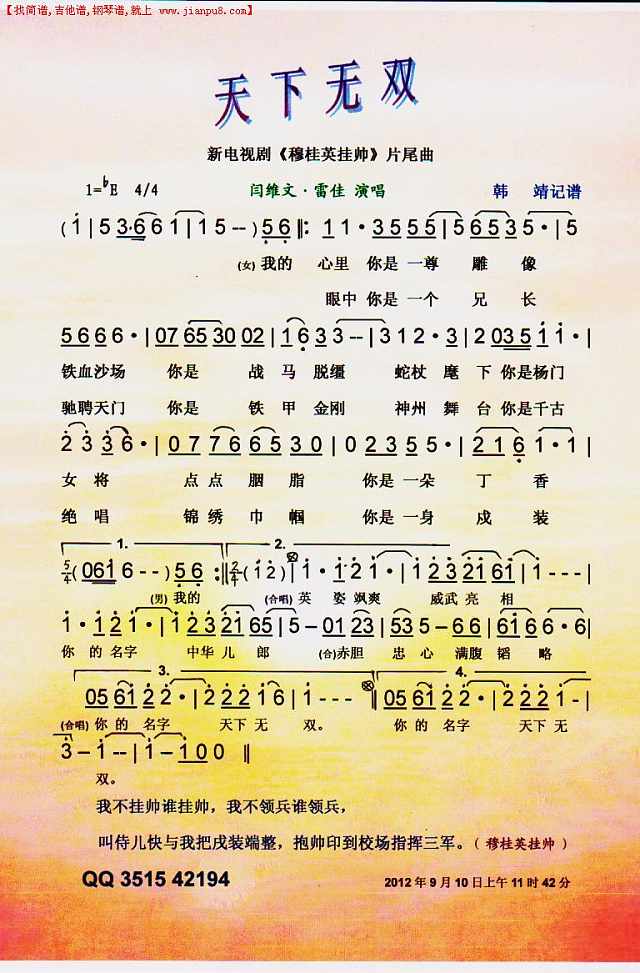 【找简谱,吉他谱,钢琴谱,就上 www.jianpu8.com】
天下无双
新电视剧《穆桂英挂帅》片尾曲
1=♭E 4/4 闫维文·雷佳 演唱 韩 靖记谱
(i | 5 3·6 6 1 | 1 5 --) 5 6 ‖: 1 1 · 3 5 5 5 | 5 6 5 3 5 · | 5
(女) 我的 心里 你是 一尊 雕 像
眼中 你是 一个 兄 长
5 6 6 6 · | 0 7 6 5 3 0 0 2 | 1 6 3 3 -- | 3 1 2 · 3 | 2 0 3 5 i i · |
铁血沙场 你是 战 马 脱缰 蛇杖 麾 下 你是杨门
驰聘天门 你是 铁 甲 金刚 神州 舞 台 你是千古
2 3 3 6 · | 0 7 7 6 6 5 3 0 | 0 2 3 5 5 · | 2 1 6 1 · 1 |
女 将 点 点 胭 脂 你是 一朵 丁 香
绝 唱 锦 绣 巾 帼 你是 一身 戍 装
1. 2.
5/4 (0 6 1 i - -) 5 6 :‖ 2/4 (i 2) | i · i · 2 i · | i 2 3 2 i 6 i | i - - - |
(男) 我的 (合唱) 英 姿 飒爽 威武 亮 相
i · i 2 i · | i 2 3 2 i 6 5 | 5 – 0 1 2 3 | 5 – 6 6 | 6 i 6 6 · 6 · |
你 的 名字 中华 儿 郎 (合)赤胆 忠 心 满腹 韬 略
3. 4.
0 5 6 i 2 2 · | 2 2 2 i 6 | i - - - | 0 5 6 i 2 2 · | 2 2 2 i |
(合唱) 你 的 名字 天下 无 双。 你 的 名字 天下 无
3 – i -- | i – i 0 0 ‖
双。
我不挂帅谁挂帅，我不领兵谁领兵，
叫侍儿快与我把戍装端整，抱帅印到校场指挥三军。（ 穆桂英挂帅 ）
QQ 3515 42194 2012 年 9 月 10 日上午 11 时 42 分